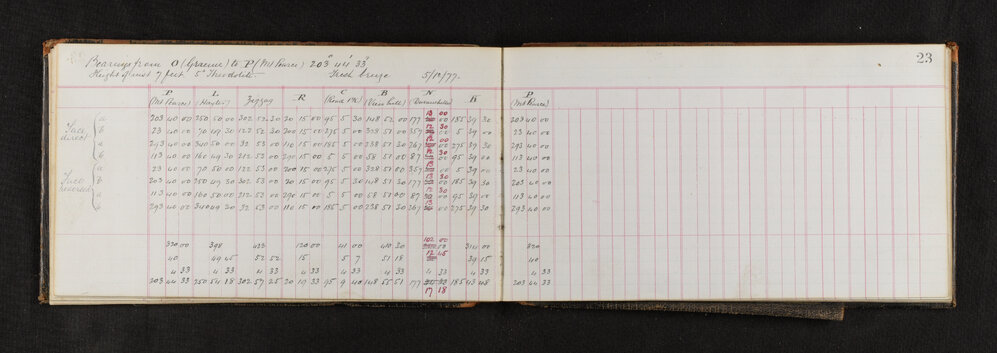 23
Bearings from O (Graeme) to P (Mt Pearce) 203° 44' 33"
Height of inst 7 feet 5" Theodolite Fresh breeze 5/10/77.
P L C B N K P
(Mt Pearce) (Hayles) Zigzag R (Road Pk) (View hill) (Mt Pearce)
Face direct
a 203 40 00 250 50 00 302 52 30 20 15 00 95 5 30 148 52 00 177 13 00 185 39 30 203 40 00
b 23 40 00 70 49 30 122 52 30 200 15 00 275 5 00 328 51 00 357 12 30 5 39 00 23 40 00
a 293 40 00 340 50 00 32 53 00 110 15 00 185 5 00 238 51 30 267 12 00 275 39 30 293 40 00
b 113 40 00 160 49 30 212 53 00 290 15 00 5 5 00 58 51 00 87 12 30 95 39 00 113 40 00
Face reversed
a 23 40 00 70 50 00 122 53 00 200 15 00 275 5 00 328 51 00 357 13 00 5 39 00 23 40 00
b 203 40 00 250 49 30 302 53 00 20 15 00 95 5 30 148 51 30 177 13 30 185 39 30 203 40 00
a 113 40 00 160 50 00 212 53 00 290 15 00 5 5 00 58 51 00 87 12 30 95 39 00 113 40 00
b 293 40 00 340 49 30 32 53 00 110 15 00 185 5 00 238 51 30 267 13 275 39 30 293 40 00
320 00 398 423 120 00 41 00 410 30 102 00 314 00 320
40 49 45 52 52 15 5 7 51 18 12 45 39 15 40
4 33 4 33 4 33 4 33 4 33 4 33 4 33 4 33 4 33
203 44 33 250 54 18 302 57 25 20 19 33 95 9 40 148 55 51 177 17 18 185 43 48 203 44 33